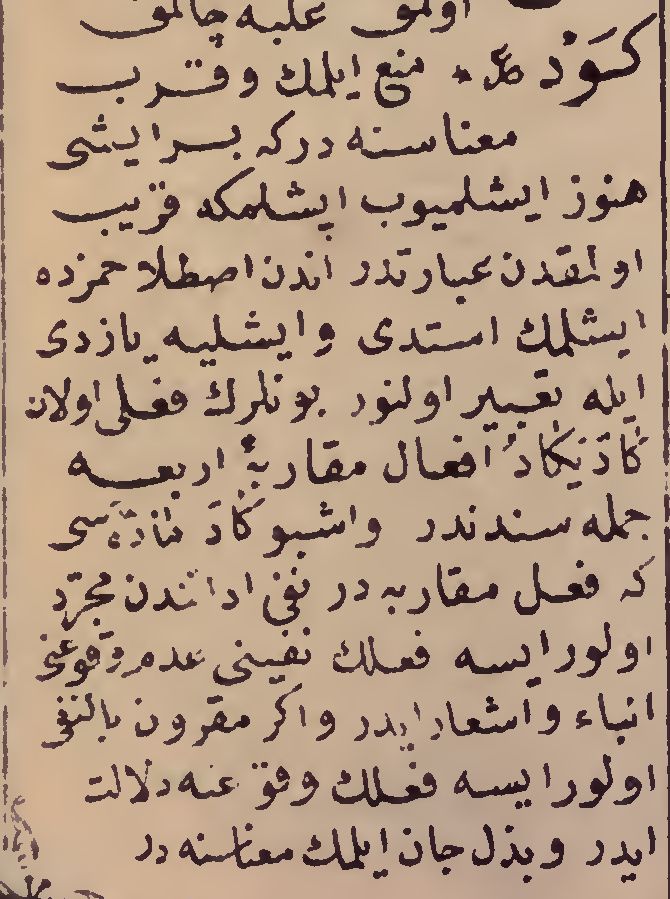 اولمق غلبه چالمق
كَوْدْ منع ايلمك و قرب
معناسنه دركه بر ايشى
هنوز ايشلميوب ايشلمكه قريب
اولمقدن عبارتدر اندن اصطلاحمزده
ايشلمك استدى و ايشليه يازدى
ايله تعبير اولنور بونلرك فعلى اولان
كَادَ يَكَادُ افعال مقاربۀ اربعه
جمله سندندر واشبو كَادَ مادّه سى
كه فعل مقاربه در نفى اداتندن مجرّد
اولور ايسه فعلك نفينى عدم وقوعنى
انباء و اشعار ايدر و اكر مقرون بالنفى
اولور ايسه فعلك وقوعنه دلالت
ايدر و بذل جان ايلمك معناسنه در